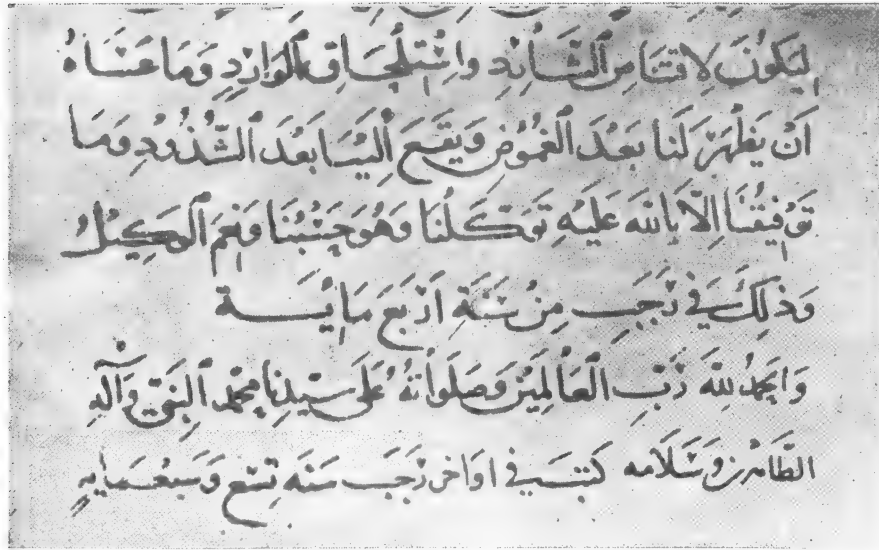 لِيَكُونَ لِاقتنَاصِ ٱلشَّارِدِ واسْتِلْحَاقِ ٱلوَارِدِ وَمَا عَسَاهُ
اَنْ يَظْهَرَ لَنا بَعْدَ ٱلغُمُوضِ وَيَقَعَ اِلَيْنَا بَعْدَ ٱلشُّذُوذِ وَمَا
تَوْفِيقُنَا اِلّا بالله عَلَيْهِ تَوَكَّلْنَا وَهُوَ حَسْبُنَا وَنِعْمَ ٱلوَكِيْلُ
وَذٰلِكَ فى رَجَبٍ مِنْ سَنَةِ اَرْبَعَ مِائَة
وَالحَمْدُ لله رَبِّ ٱلعَالَمِيْنَ وَصَلَواتُهُ عَلَى سَيّدِنا محمّد ٱلنَّبِيّ وَآلِهِ
الطَّاهرين وَسَلَامه كتبت فى اواخر رَجَب سَنَه تِسْع وَسَبْعمايه